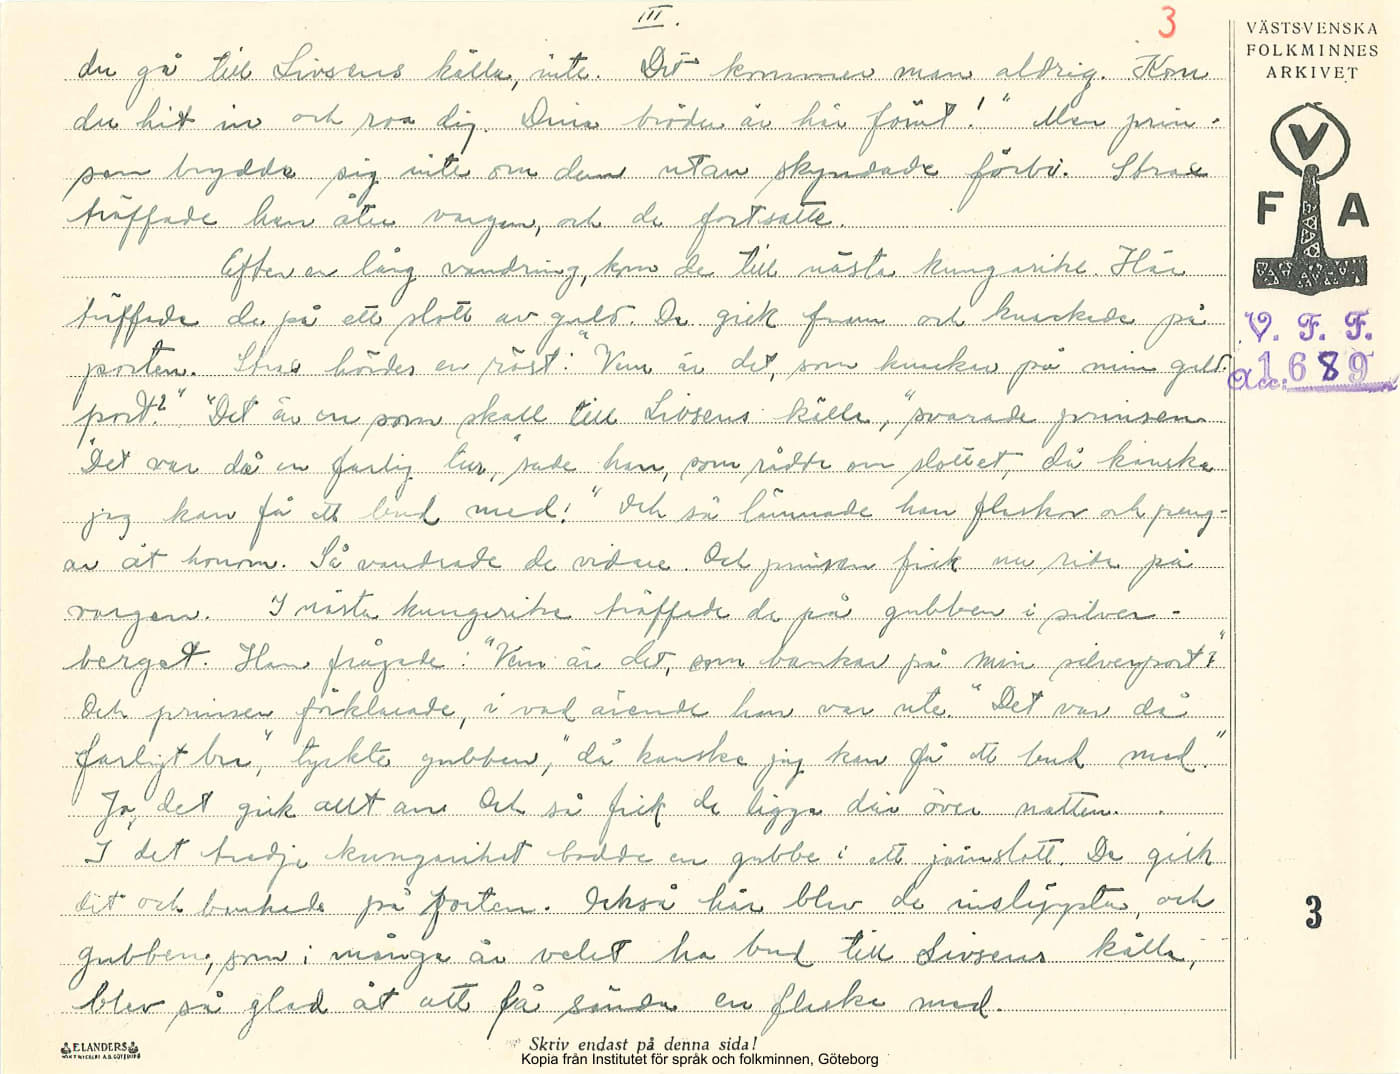 III.
3
VÄSTSVENSKA
FOLKMINNES
ARKIVET
V
F A
V. F. F.
Acc. 1689
du gå till Livsens källa, inte. Dit kommer man aldrig. Kom
du hit in och roa dig. Dina bröder är här förut!" Men prin-
sen brydde sig inte om dem utan skyndade förbi. Strax
träffade han åter vargen, och de fortsatte.
Efter en lång vandring, kom de till nästa kungarike. Här
träffade de på ett slott av guld. De gick fram och knackade på
porten. Strax hördes en röst: "Vem är det, som knackar på min guld-
port?" "Det är en som skall till Livsens källa," svarade prinsen.
"Det var då en farlig tur," sade han, som rådde om slottet, "då kanske
jag kan få ett bud med!" Och så lämnade han flaskor och peng-
ar åt honom. Så vandrade de vidare. Och prinsen fick nu rida på
vargen. I nästa kungarike träffade de på gubben i silver-
berget. Han frågade: "Vem är det, som bankar på min silverport?"
Och prinsen förklarade, i vad ärende han var ute. "Det var då
farligt bra," tyckte gubben, "då kanske jag kan få ett bud med."
Ja, det gick allt an. Och så fick de ligga där över natten.
I det tredje kungariket bodde en gubbe i ett järnslott. De gick
dit och bankade på porten. Också här blev de insläppta, och
gubben, som i många år velat ha bud till Livsens källa,
blev så glad åt att få sända en flaska med.
3
E. LANDERS
Skriv endast på denna sida!
Kopia från Institutet för språk och folkminnen, Göteborg